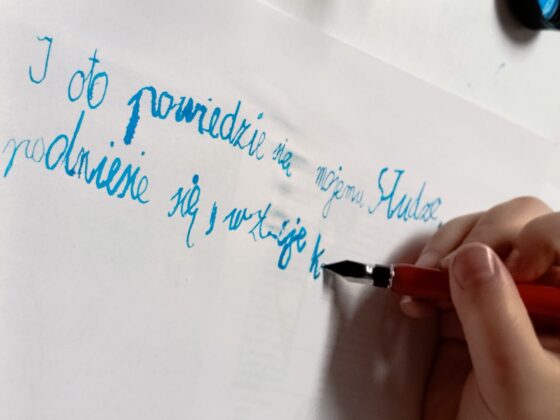 I oto powiedzie się mojemu Słudze,
podniesie się, wzbije k